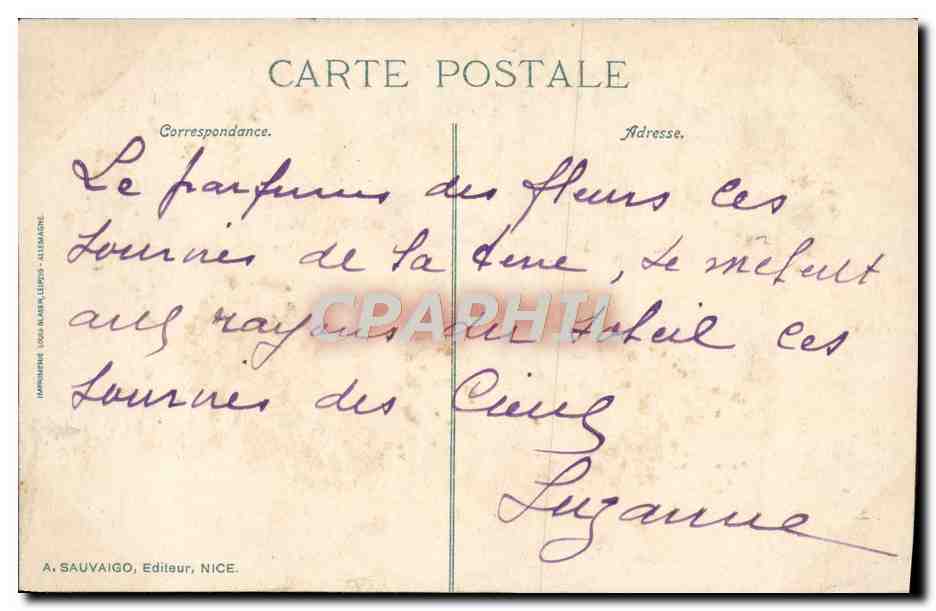 CARTE POSTALE
Correspondance.
Adresse.
Le parfums des fleurs ces
sourires de la terre, se mêlent
aux rayons du soleil ces
sourires des Cieux
Suzanne
CPAPHIL
IMPRIMERIE LOUIS GLASER, LEIPZIG - ALLEMAGNE.
A. SAUVAIGO, Editeur, NICE.